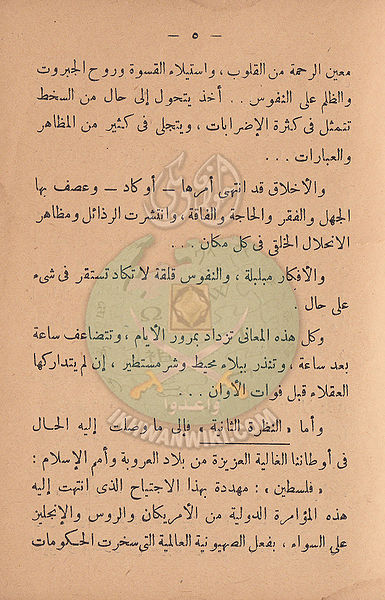 — ٥ —
معين الرحمة من القلوب ، واستيلاء القسوة وروح الجبروت
والظلم على النفوس . . أخذ يتحول إلى حال من السخط
تتمثل فى كثرة الإضرابات ، ويتجلى فى كثير من المظاهر
والعبارات . . .
والأخلاق قد انتهى أمرها – أو كاد – وعصف بها
الجهل والفقر والحاجة والفاقة ، وانتشرت الرذائل ومظاهر
الانحلال الخلقى فى كل مكان . . .
والأفكار مبلبلة ، والنفوس قلقة لا تكاد تستقر فى شىء
على حال .
وكل هذه المعانى تزداد بمرور الأيام ، وتتضاعف ساعة
بعد ساعة ، وتنذر ببلاء محيط وشر مستطير ، إن لم يتداركها
العقلاء قبل فوات الأوان . . .
وأما « النظرة الثانية » فإلى ما وصلت إليه الحال
فى أوطاننا الغالية العزيزة من بلاد العروبة وأمم الإسلام :
« فلسطين » : مهددة بهذا الاجتياح الذى انتهت إليه
هذه المؤامرة الدولية من الأمريكان والروس والإنجليز
على السواء ، بفعل الصهيونية العالمية التى سخرت الحكومات
وأعدوا
IKHWANWIKI.COM